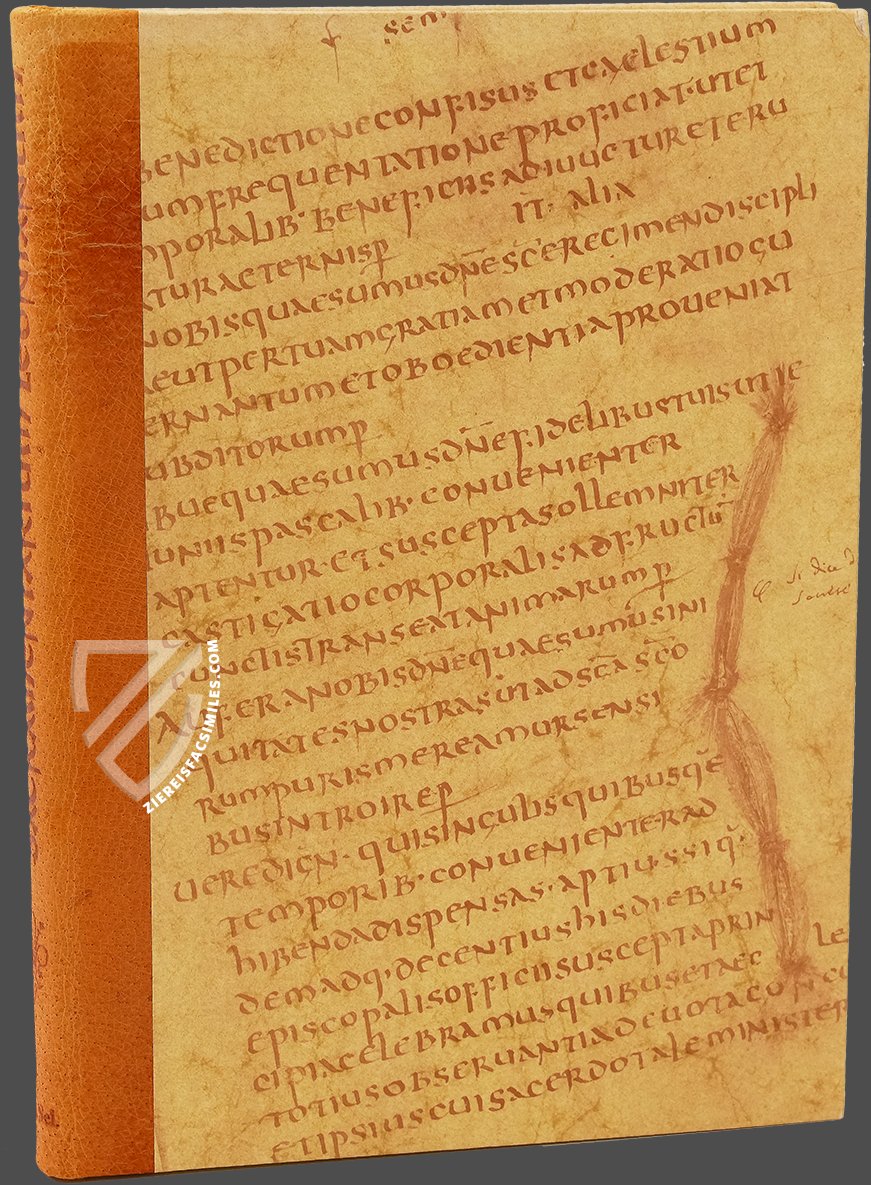 sem
BENEDICTIONECONFISUSETCAELESTIUM
UMFREQUENTATIONEPROFICIAT·UTET
MPORALIB·BENEFICIISADIUUETURETERU
IT· ALIA
ATURAETERNISP
NOBISQUAESUMUSDNESCEREGIMENDISCIPLI
AEUTPERTUAMGRATIAMETMODERATIOGU
ERNANTUMETOBOEDIENTIAPROUENIAT
UBDITORUMP
BUEQUAESUMUSDNEFIDELIBUSTUISUTIE
UNIISPASCALIB·CONUENIENTER
APTENTUR·ETSUSCEPTASOLLEMNITER
CASTIGATIOCORPORALISADFRUCTU
CUNCTISTRANSEATANIMARUMP
AUFERANOBISDNEQUAESUMUSINI
QUITATESNOSTRASUTADSCASCO
RUMPURISMEREAMURSENSI
BUSINTROIREP
UEREDIGN·QUISINGULISQUIBUSQUE
TEMPORIB·CONUENIENTERAD
HIBENDADISPENSAS·APTIUSSIQ·
DEMADQ·DECENTIUSHISDIEBUS
EPISCOPALISOFFICIISUSCEPTAPRIN
CIPIACELEBRAMUSQUIBUSETAEC
LE
TOTIUSOBSERUANTIADEUOTACON
ETIPSIUSCUISACERDOTALEMINISTER
ZIEREISFACSIMILES.COM